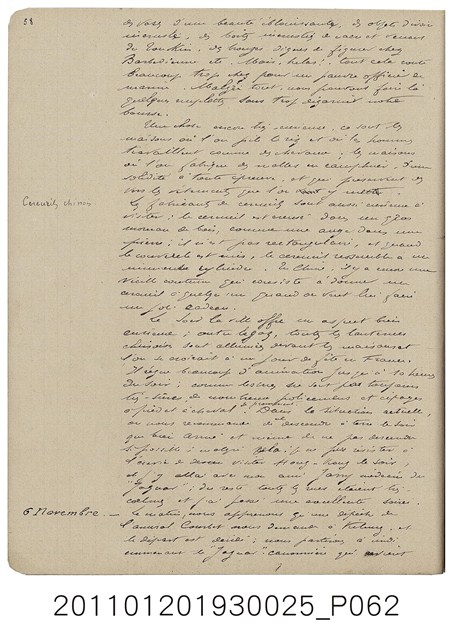 58
des vases d'une beauté éblouissante, des objets d'ivoire
incrustés, des boîtes incrustées de nacre et venant
du Tonkin, des bronzes dignes de figurer chez
Barbedienne etc. Mais, hélas! tout cela coûte
beaucoup trop cher pour un pauvre officier de
marine. Malgré tout, nous pouvons faire là
quelques emplettes sans trop dégarnir notre
bourse.
Une chose encore très curieuse, ce sont les
maisons où l'on pile le riz et où les hommes
travaillent comme des chevaux; les maisons
où l'on fabrique des malles en camphrier d'une
solidité à toute épreuve, et qui préservent des
vers les vêtements que l'on veut y mettre.
Cercueils chinois.
Les fabricants de cercueils sont aussi curieux à
visiter; le cercueil est creusé dans un gros
morceau de bois, comme une auge dans une
pierre; il n'est pas rectangulaire, et quand
le couvercle est mis, le cercueil ressemble à un
cylindre. En Chine, il y a encore une
vieille coutume qui consiste à donner un
cercueil à quelqu'un quand on veut lui faire
un joli cadeau.
Le soir la ville offre un aspect bien
curieux; outre le gaz, toutes les lanternes
chinoises sont allumées devant les maisons et
l'on se croirait à un jour de fête en France.
Il règne beaucoup d'animation jusqu'à 10 heures
du soir; comme les rues ne sont pas toujours
très sûres, de nombreux policemen et cipayes
à pied et à cheval se promènent. Dans la situation actuelle,
on nous recommande de ne descendre à terre le soir
que bien armé et même de ne pas descendre
si possible; malgré cela, je ne puis résister à
l'envie de visiter Hong-Kong le soir,
et j'y allai avec mon ami Jamy médecin du
"Jaguar"; du reste, toutes les rues étaient très
calmes et j'ai passé une excellente soirée.
6 Novembre. — Le matin, nous apprenons qu'une dépêche de
l'amiral Courbet nous demande à Kelung, et
le départ est décidé; nous partons à midi
emmenant le "Jaguar" canonnière qui
201101201930025_P062